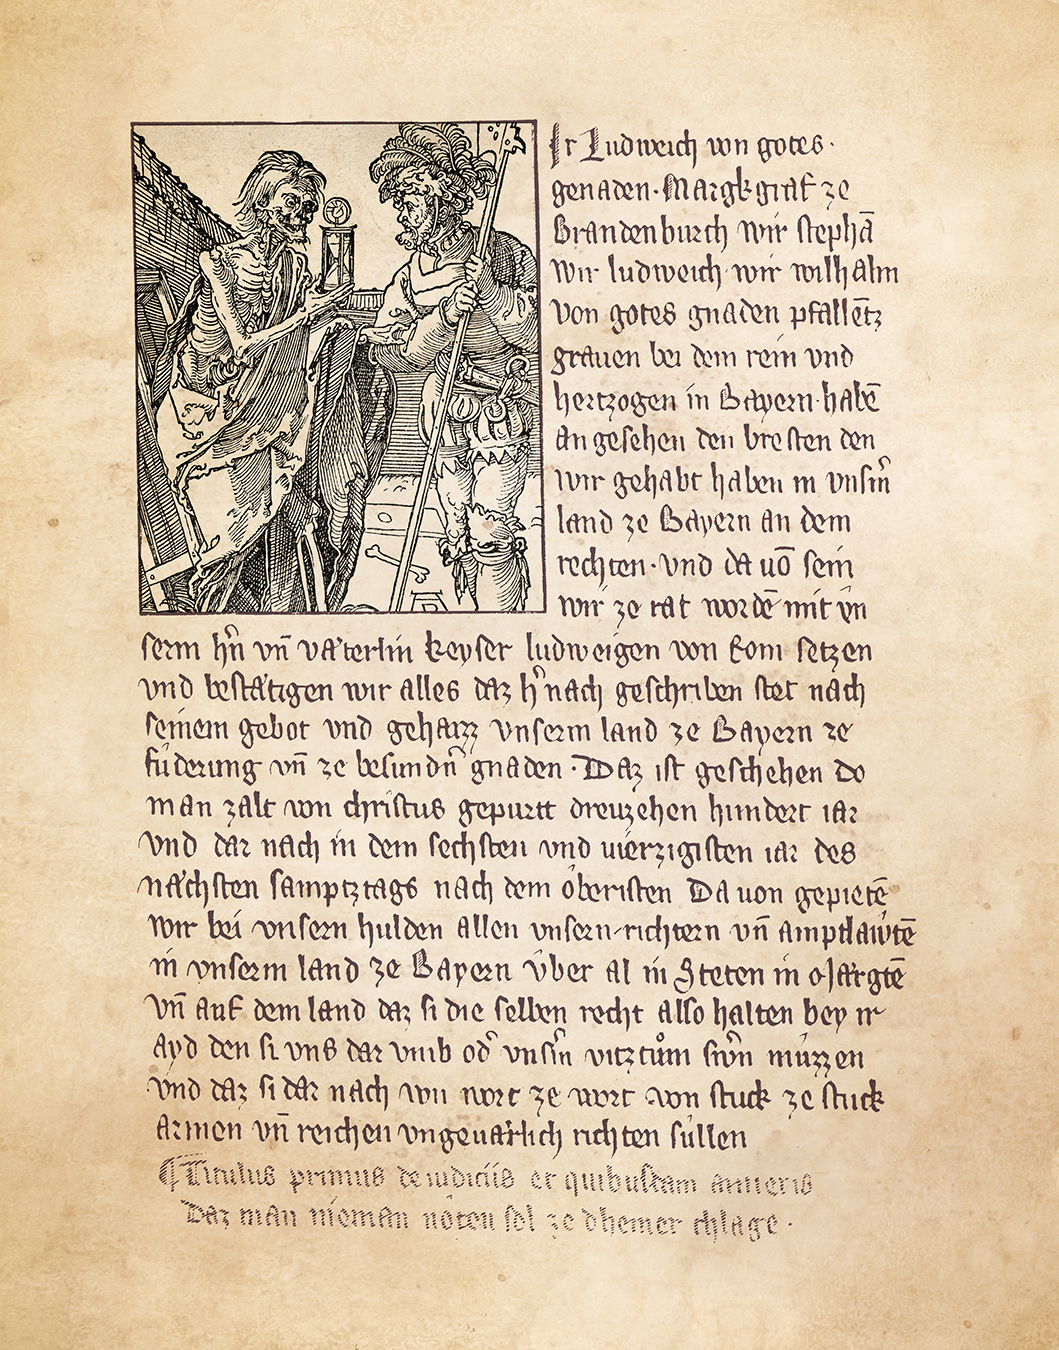 Ir Ludweich von gotes·
genaden·Margkgraf ze
Brandenburch wir stephā
wir ludweich wir wilhalm
von gotes gnaden pfallētz
grauen bei dem rein vnd
hertzogen in Bayern·habē
an gesehen den bresten den
wir gehabt haben in vnsⁿn
land ze Bayern an dem
rechten·vnd da uō sein
wir ze rat wordē mit vn
serm hⁿn vn̄ vaͤterlin keyser ludweigen von Rom setzen
vnd bestaͤtigen wir alles daz h'nach geschriben stet nach
seinem gebot vnd gehaizz vnserm land ze Bayern ze
fuͤderung vn̄ ze besundⁿn gnaden·Daz ist geschehen do
man zalt von christus gepurtt dreuzehen hundert iar
vnd dar nach in dem sechsten vnd uierzigisten iar des
naͤchsten samptztags nach dem oͤbristen Da uon gepietē
wir bei vnsern hulden allen vnsern richtern vn̄ amptlaͤwtē
in vnserm land ze Bayern vͤber al in Steten in Maͤrgtē
vn̄ auf dem land daz si die selben recht also halten bey ir
ayd den si vns dar vmb od' vnsⁿn vitztuͦm swⁿn muͤzzen
vnd daz si dar nach von wort ze wort von stuck ze stuck
armen vn̄ reichen vngeuaͤrlich richten suͤllen
¶Titulus primus de iudiciis et quibusdam
Daz man nieman noͤten sol ze dhemer chlage·